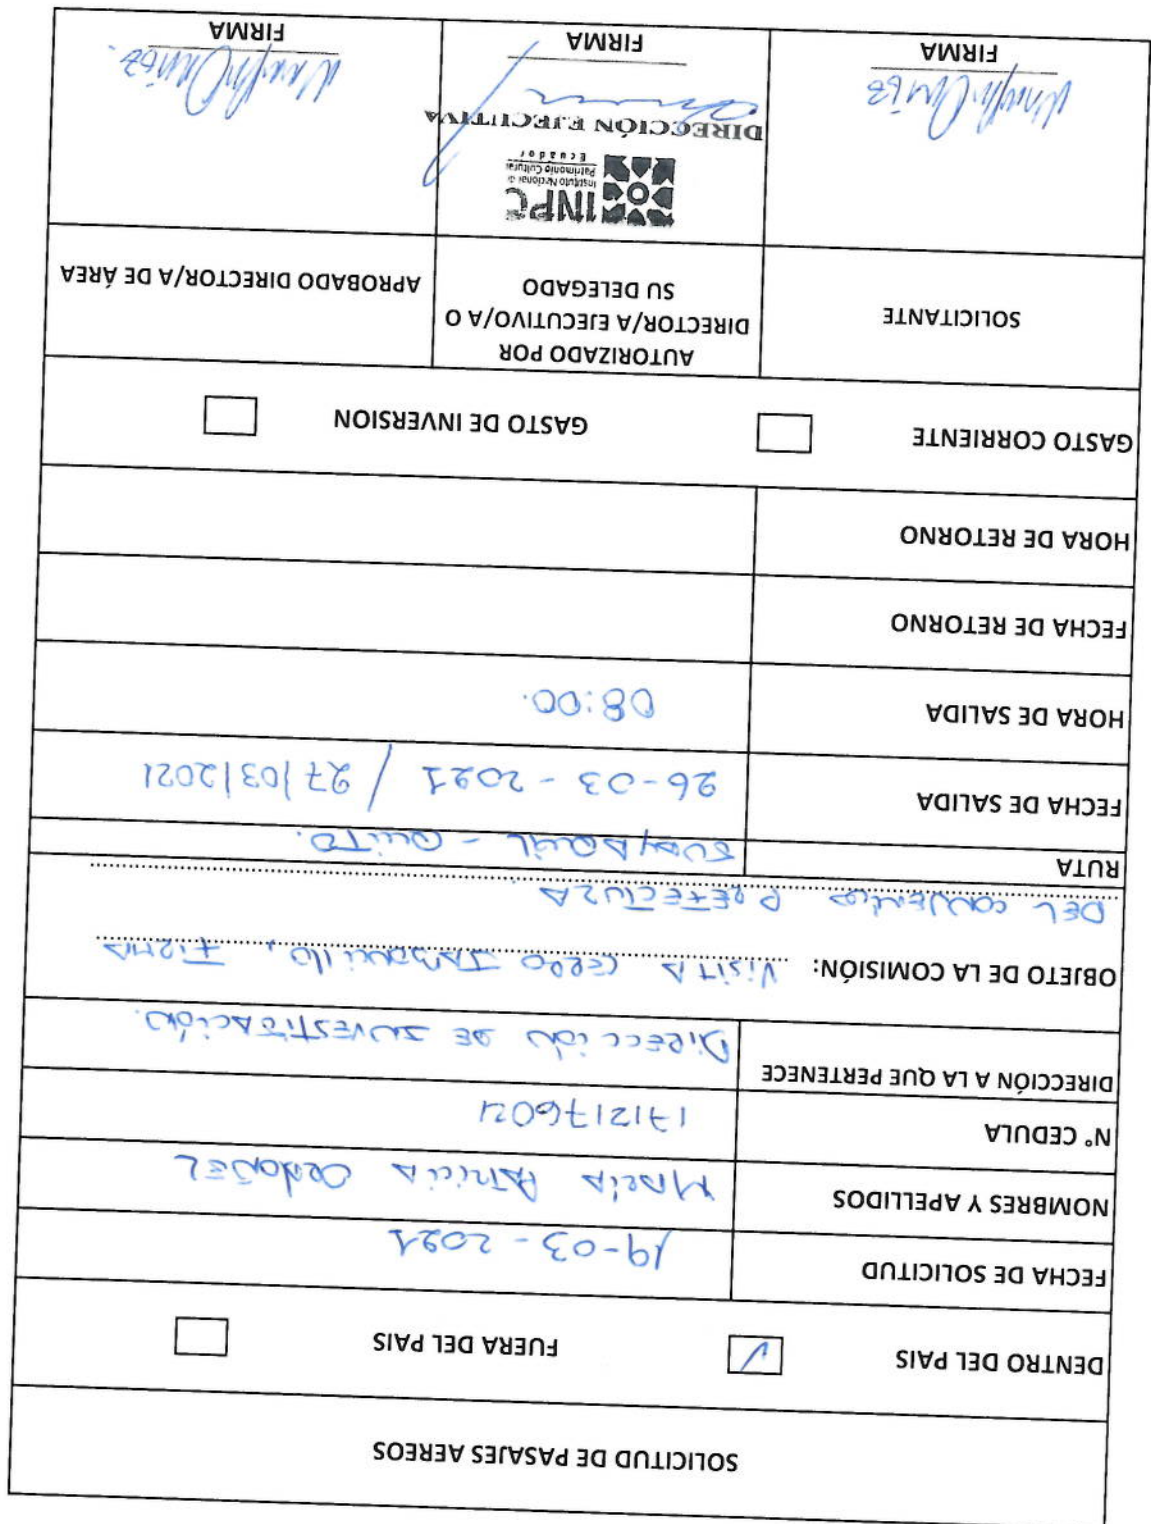 SOLICITUD DE PASAJES AEREOS
DENTRO DEL PAIS FUERA DEL PAIS
FECHA DE SOLICITUD 19-03-2021
NOMBRES Y APELLIDOS MARÍA PATRICIA ORDOÑEZ
N° CEDULA 1712176021
DIRECCIÓN A LA QUE PERTENECE DIRECCIÓN DE INVESTIGACIÓN.
OBJETO DE LA COMISIÓN: VISITA CERRO JABONCILLO, FIRMA
DEL CONVENIO PREFECTURA
RUTA GUAYAQUIL - QUITO.
FECHA DE SALIDA 26-03-2021 / 27/03/2021
HORA DE SALIDA 08:00.
FECHA DE RETORNO
HORA DE RETORNO
GASTO CORRIENTE GASTO DE INVERSION
SOLICITANTE
AUTORIZADO POR
DIRECTOR/A EJECUTIVO/A O
SU DELEGADO
APROBADO DIRECTOR/A DE ÁREA
INPC
Instituto Nacional de
Patrimonio Cultural
Ecuador
DIRECCIÓN EJECUTIVA
FIRMA
FIRMA
FIRMA